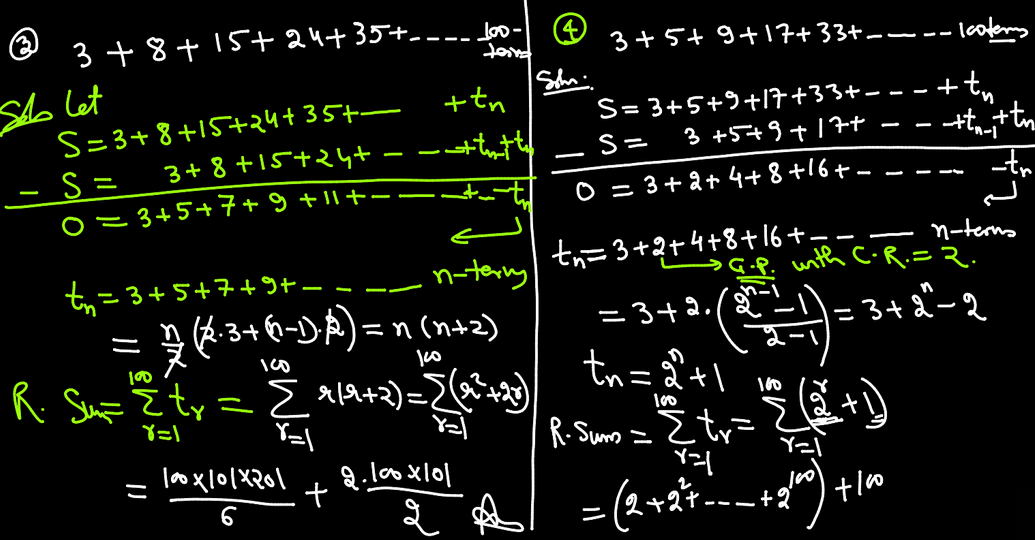 ③ 3 + 8 + 15 + 24 + 35 + ----- 100-terms
Soln Let
S = 3 + 8 + 15 + 24 + 35 + --- + tn
- S = 3 + 8 + 15 + 24 + - - - + tn-1 + tn
0 = 3 + 5 + 7 + 9 + 11 + ------ + - - tn
tn = 3 + 5 + 7 + 9 + ----- n-terms
= n/2 (2.3 + (n-1).2) = n (n+2)
R. Sum = 100 Σ r=1 tr = 100 Σ r=1 r(r+2) = 100 Σ r=1 (r² + 2r)
= 100×101×201/6 + 2.100×101/2
④ 3 + 5 + 9 + 17 + 33 + ----- 100terms
Soln:
S = 3 + 5 + 9 + 17 + 33 + - - - + tn
- S = 3 + 5 + 9 + 17 + - - - + tn-1 + tn
0 = 3 + 2 + 4 + 8 + 16 + ------ - tn
tn = 3 + 2 + 4 + 8 + 16 + - - - n-terms
→ G.P. with C.R. = 2.
= 3 + 2.(2^(n-1) - 1 / 2-1) = 3 + 2^n - 2
tn = 2^n + 1
R. Sum = 100 Σ r=1 tr = 100 Σ r=1 (2^r + 1)
= (2 + 2² + ---- + 2^100) + 100